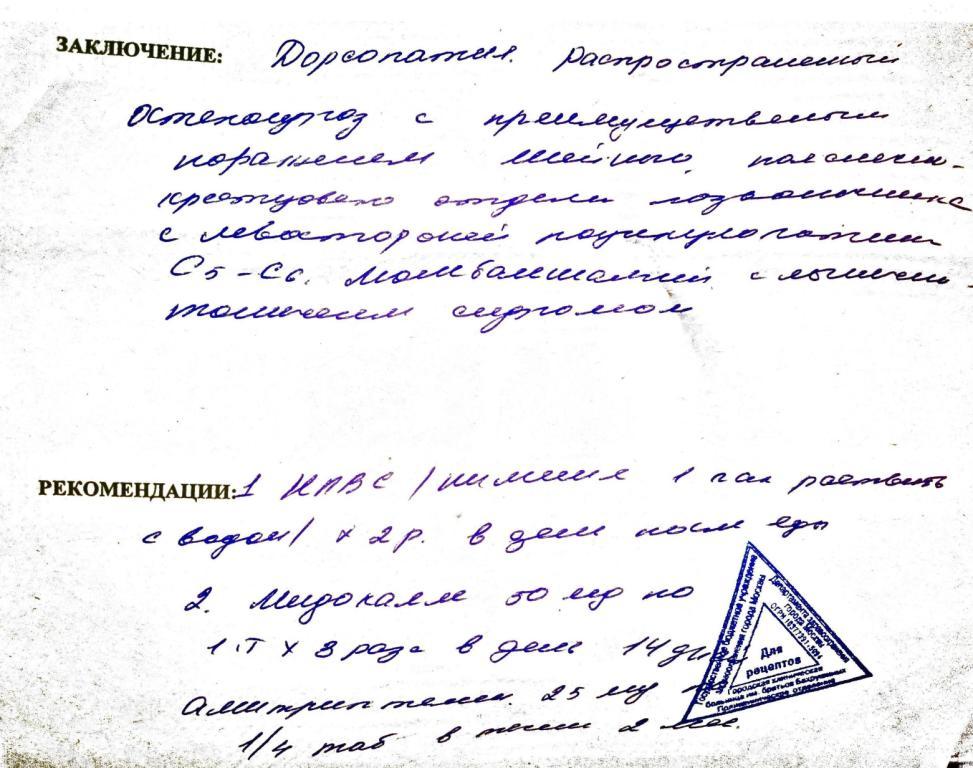 ЗАКЛЮЧЕНИЕ: Дорсопатия. Распространенный
Остеохондроз с преимущественным
поражением шейного, пояснично-
крестцового отдела позвоночника
с левосторонней радикулопатией
C5-C6. Люмбоишиалгий с мышечно-
тоническим синдромом
РЕКОМЕНДАЦИИ: 1 НПВС / нимесил 1 пак растворить
с водой / х 2 р. в день после еды
2. Мидокалм 50 мг по
1 т х 3 раза в день 14 дн
Амитриптилин 25 мг
1/4 таб в 2 мес.
Государственное бюджетное учреждение
здравоохранения города Москвы
Департамента здравоохранения
города Москвы
Для
рецептов
Городская клиническая
больница им. братьев Бахрушиных